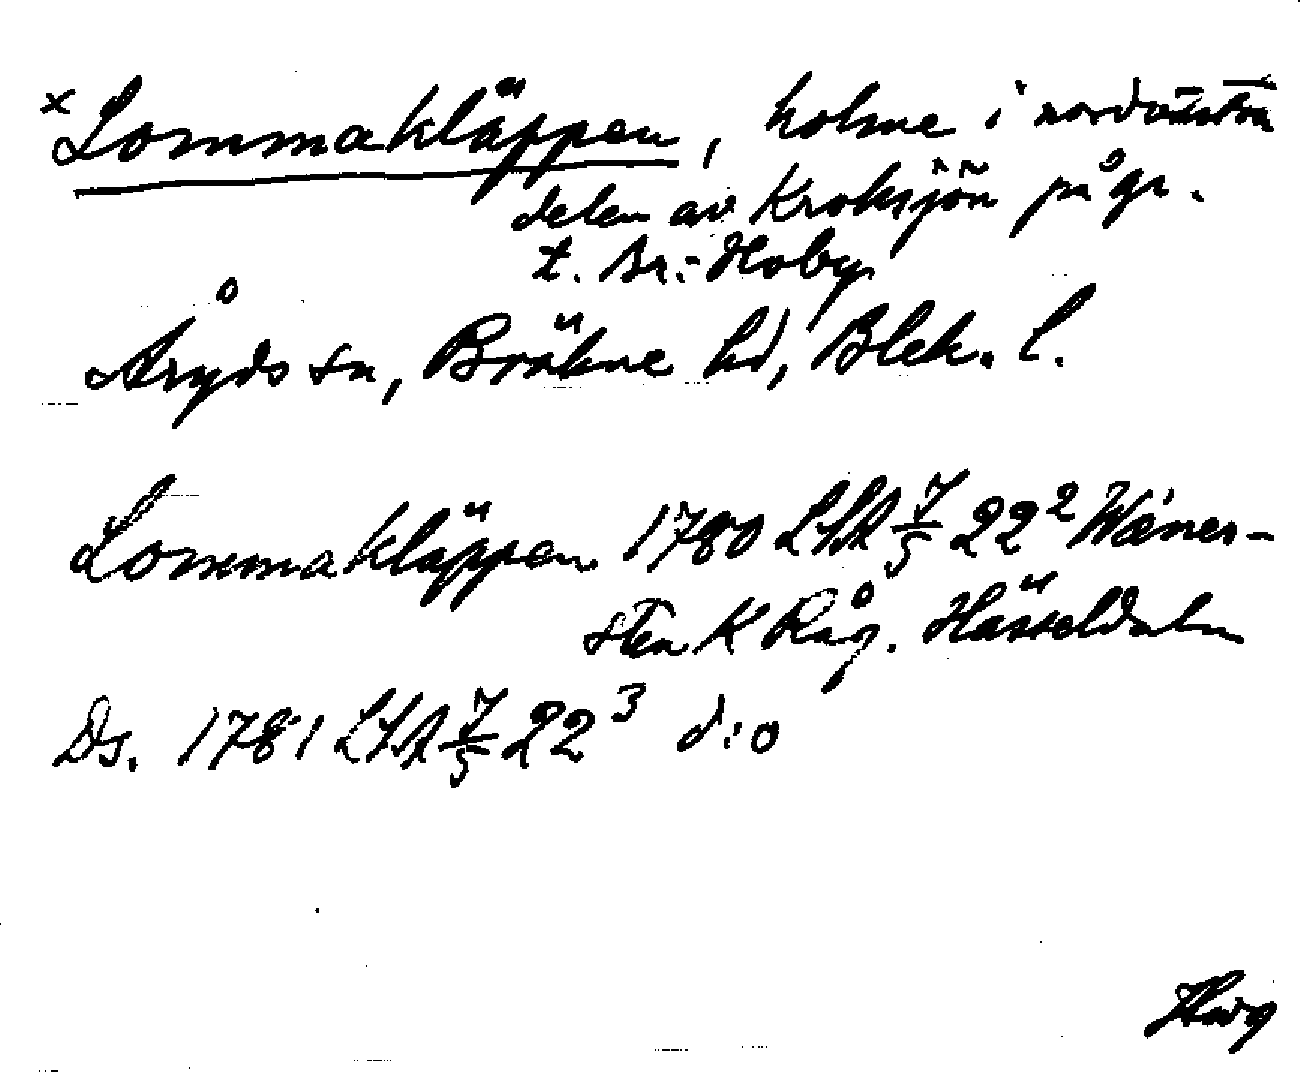 x Lommakläppen, holme i nordöstra
delen av Kroksjön på gr.
t. Br.-Hoby
Åryds sn, Bräkne hd, Blek. l.
Lommakläppen 1780 LSA 7/5 22² Wäner-
sten K Råg. Hässeldalen
Ds. 1781 LSA 7/5 22³ d:o